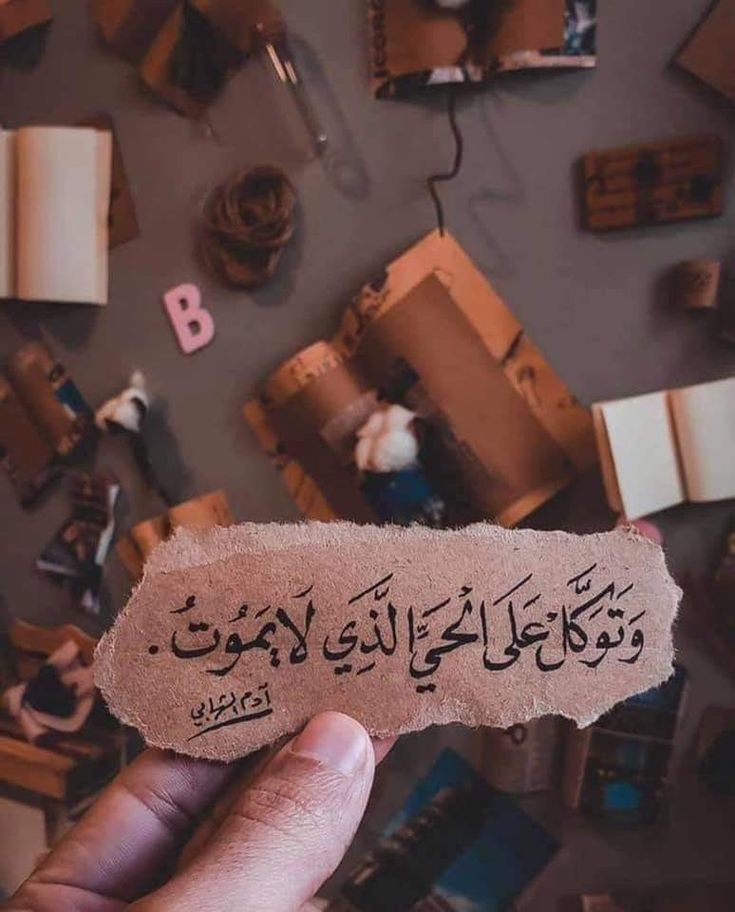 وَتَوَكَّلْ عَلَى الْحَيِّ الَّذِي لَا يَمُوتُ .
آدم الشهابي
B